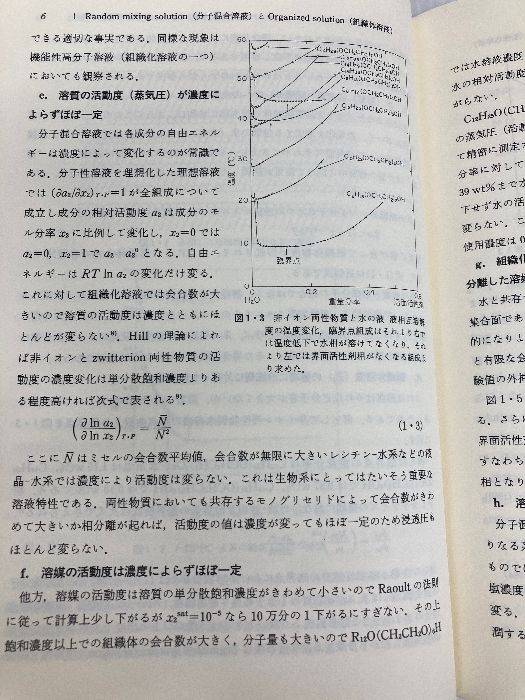 6　1　Random mixing solution（分子混合溶液）と Organized solution（組織体溶液）
できる適切な事実である．同様な現象は
機能性高分子溶液（組織化溶液の一つ）
においても観察される．
e. 溶質の活動度（蒸気圧）が濃度に
よらずほぼ一定
分子混合溶液では各成分の自由エネル
ギーは濃度によって変化するのが常識で
ある．分子性溶液を理想化した理想溶液
では (∂a₂/∂x₂)T·P=1 が全組成について
成立し成分の相対活動度 a₂ は成分のモ
ル分率 x₂ に比例して変化し，x₂=0 では
a₂=0，x₂=1 で a₂=a₂° となる．自由エ
ネルギーは RT ln a₂ の変化だけ変る．
これに対して組織化溶液では会合数が大
きいので溶質の活動度は濃度とともにほ
とんどが変らない⁸⁾．Hill の理論によれ
ば非イオンと zwitterion 両性物質の活
動度の濃度変化は単分散飽和濃度よりあ
る程度高ければ次式で表される⁹⁾．
60
50
40
30
20
10
0
温度（℃）
臨界点
0
H₂O
0.2
0.4
重量分率
図1・3　非イオン両性物質と水の液－液相互溶解
度の温度変化，臨界点組成はそれより右で
は温度低下で水相が溶けてなくなり，それ
より左では界面活性剤相がなくなる組成より求めた．
(∂ ln a₂/∂ ln x₂)T·P　N̄/N̄²　(1・3)
ここに N̄ はミセルの会合数平均値，会合数が無限に大きいレシチン－水系などの液
晶－水系では濃度により活動度は変らない．これは生物系にとってはたいそう重要な
溶液特性である．両性物質においても共存するモノグリセリドによって会合数がきわ
めて大きいか相分離が起れば，活動度の値は濃度が変ってもほぼ一定のため浸透圧も
ほとんど変らない．
f. 溶媒の活動度は濃度によらずほぼ一定
他方，溶媒の活動度は溶質の単分散飽和濃度がきわめて小さいので Raoult の法則
に従って計算上少し下がるが x₂ˢᵃᵗ=10⁻⁵ なら 10 万分の 1 下がるにすぎない．その上
飽和濃度以上での組織体の会合数が大きく，分子量も大きいので R₁₂O(CH₂CH₂O)₆H
では水溶液濃度
水の相対活動度
がらない．
の蒸気圧（活動
て精密に測定
分率に対して
39 wt% まで
下せず水の活
変らない．こ
使用温度は
g. 組織化
分離した溶
水と共存す
集合面であ
的になりよ
と有限な会
験値の外挿
図1・5
る．さらに
界面活性
すなわち
相となり
h. 溶
分子混
りなる
ものでは
塩濃度
変る．
潤する